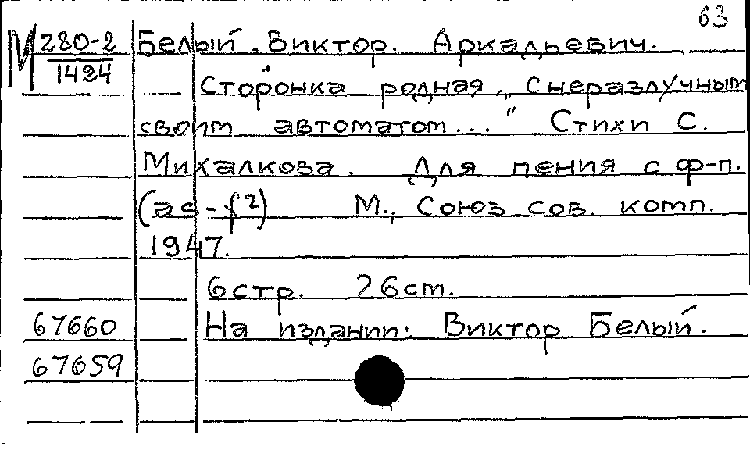 63
М 280-2 Белый, Виктор. Аркадьевич.
1424 Сторонка родная „С неразлучным
своим автоматом..." Стихи С.
Михалкова. Для пения с ф-п.
(as-f²) М., Союз сов. комп.
1947.
6стр. 26см.
67660 На издании: Виктор Белый.
67659